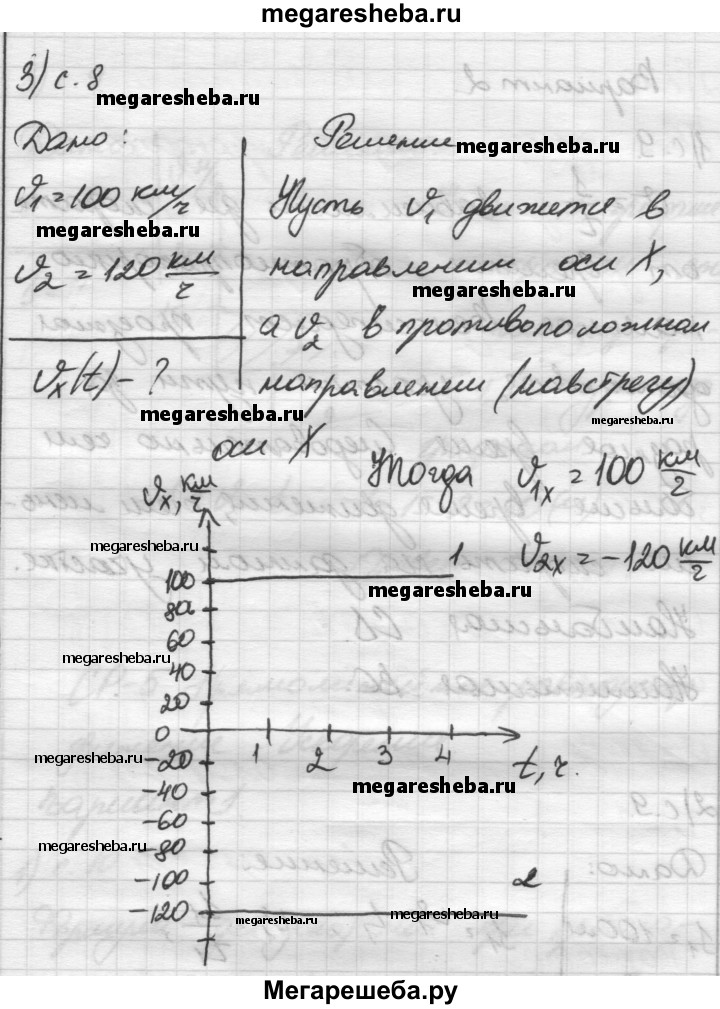 megaresheba.ru
3) с. 8
megaresheba.ru
Дано:
Решение
megaresheba.ru
ϑ₁ = 100 км/ч
megaresheba.ru
ϑ₂ = 120 км/ч
ϑₓ(t) - ?
Пусть ϑ₁ движется в
направлении оси X,
megaresheba.ru
а ϑ₂ в противоположном
направлении (навстречу)
megaresheba.ru
megaresheba.ru
оси X
Тогда ϑ₁ₓ = 100 км/ч
ϑ₂ₓ = -120 км/ч
ϑₓ, км/ч
megaresheba.ru
1
100
megaresheba.ru
80
60
megaresheba.ru
40
20
0
1 2 3 4
t, ч.
-20
megaresheba.ru
megaresheba.ru
-40
-60
-80
megaresheba.ru
-100
2
-120
megaresheba.ru
megaresheba.ru
Мегарешеба.ру